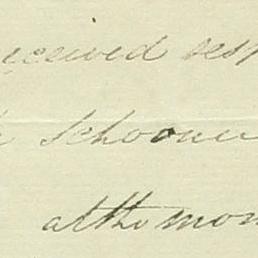 received resp
schooner
at the mom